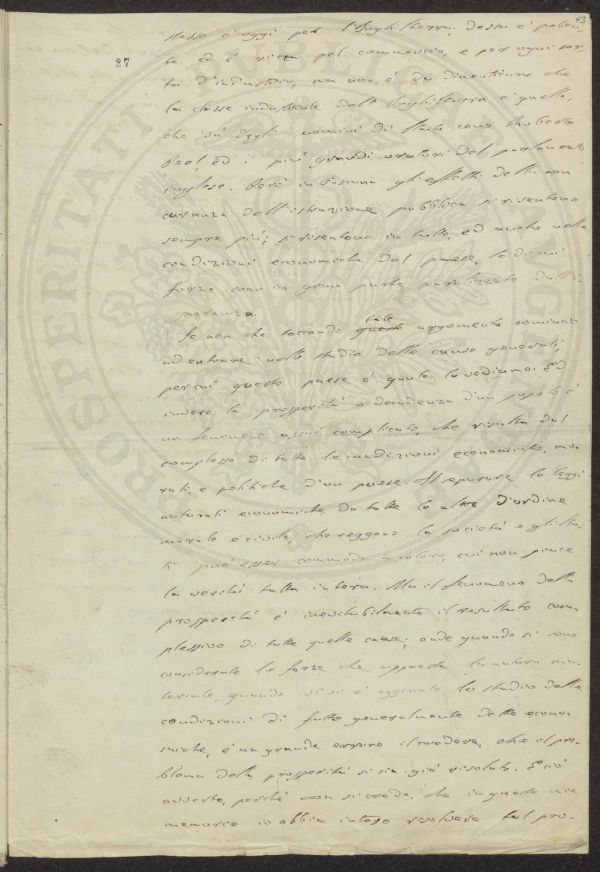 53
27
stesso è oggi per l'Inghilterra; dessa è poten-
te ed è ricca pel commercio, e per ogni sor-
ta d'industria, ma non è da dimenticare che
la classe industriale dell'Inghilterra è quella,
che dà degli uomini di Stato come Roberto
Peel ed i più grandi oratori del parlamento
inglese. Però in Toscana gli effetti della non
curanza dell'istruzione pubblica si risentono
sempre più; si risentono in tutto, ed anche nelle
condizioni economiche del paese, le di cui
forze sono in gran parte paralizzate dall'i-
gnoranza.
Se non che toccando tale argomento comincio
ad entrare nello studio delle cause generali,
perchè questo paese è quale lo vediamo. Ed
invero la prosperità o decadenza d'un popolo è
un fenomeno assai complicato, che risulta dal
complesso di tutte le condizioni economiche, mo-
rali, e politiche d'un paese. Il separare le leggi
naturali economiche da tutte le altre d'ordine
morale e civile, che reggono la società e gli sta-
ti può esser comodo a coloro, cui non piace
la verità tutta intera. Ma il fenomeno della
prosperità è inevitabilmente il resultato com-
plessivo di tutte quelle cause; onde quando si sono
considerate le forze che appresta la natura ma-
teriale, quando vi si è aggiunto lo studio delle
condizioni di fatto generalmente dette econo-
miche, è un grande errore il credere, che il pro-
blema della prosperità si sia già risoluto. E ciò
avverto, perchè non si creda, che in queste mie
memorie io abbia inteso risolvere tal pro-
PROSPERITATI PUBLICAE AUGENDAE